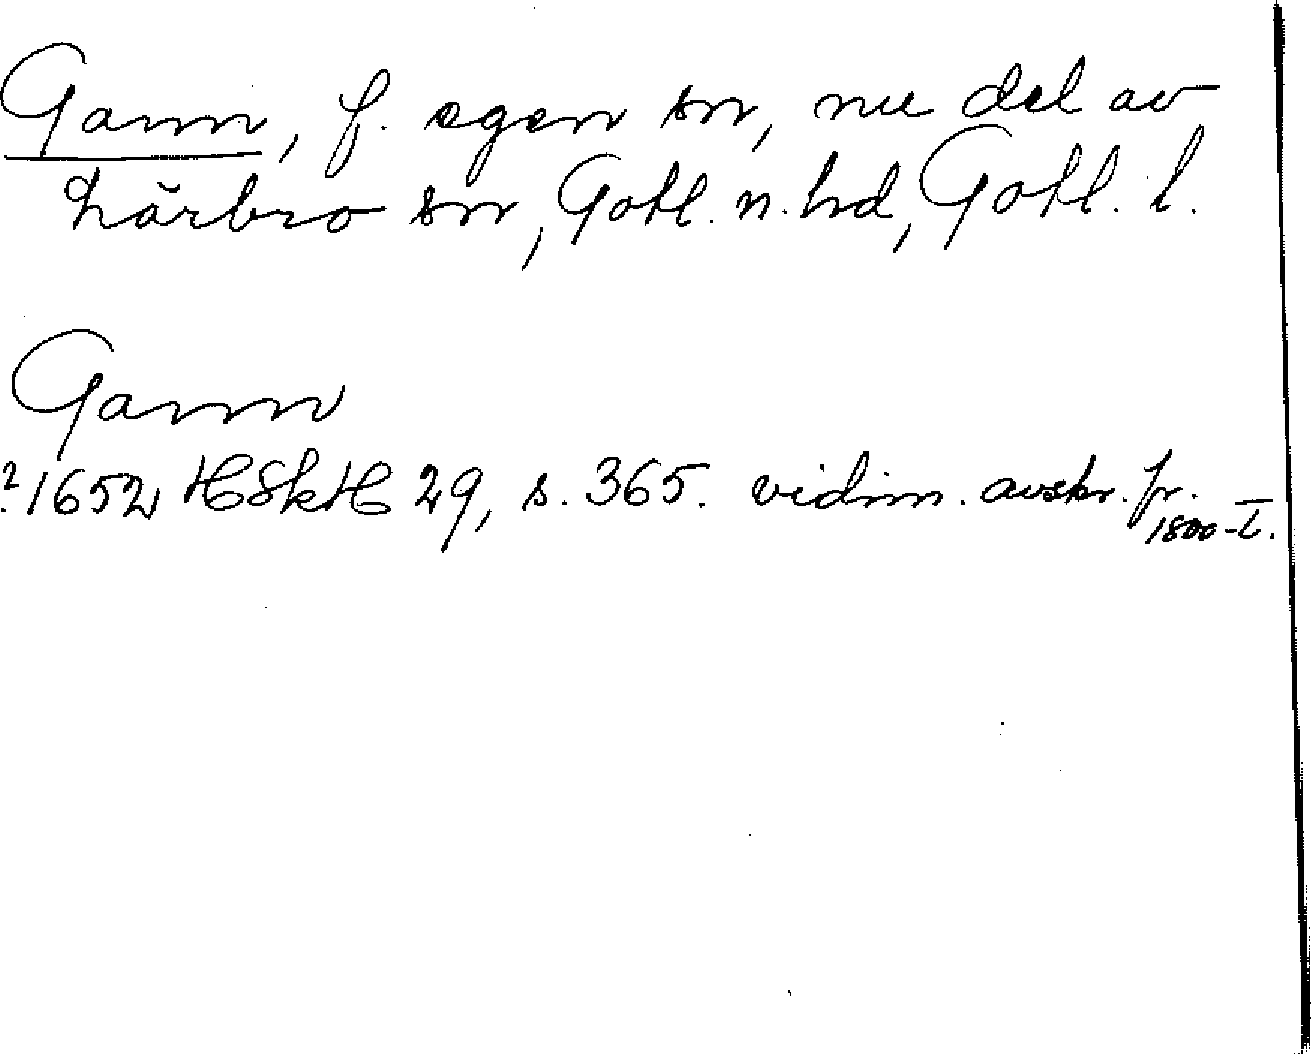 Gann, f. egen sn, nu del av
Lärbro sn, Gotl. n. hd, Gotl. l.
Gann
?1652 HSkH 29, s. 365. vidim. avskr. fr.
1800-t.